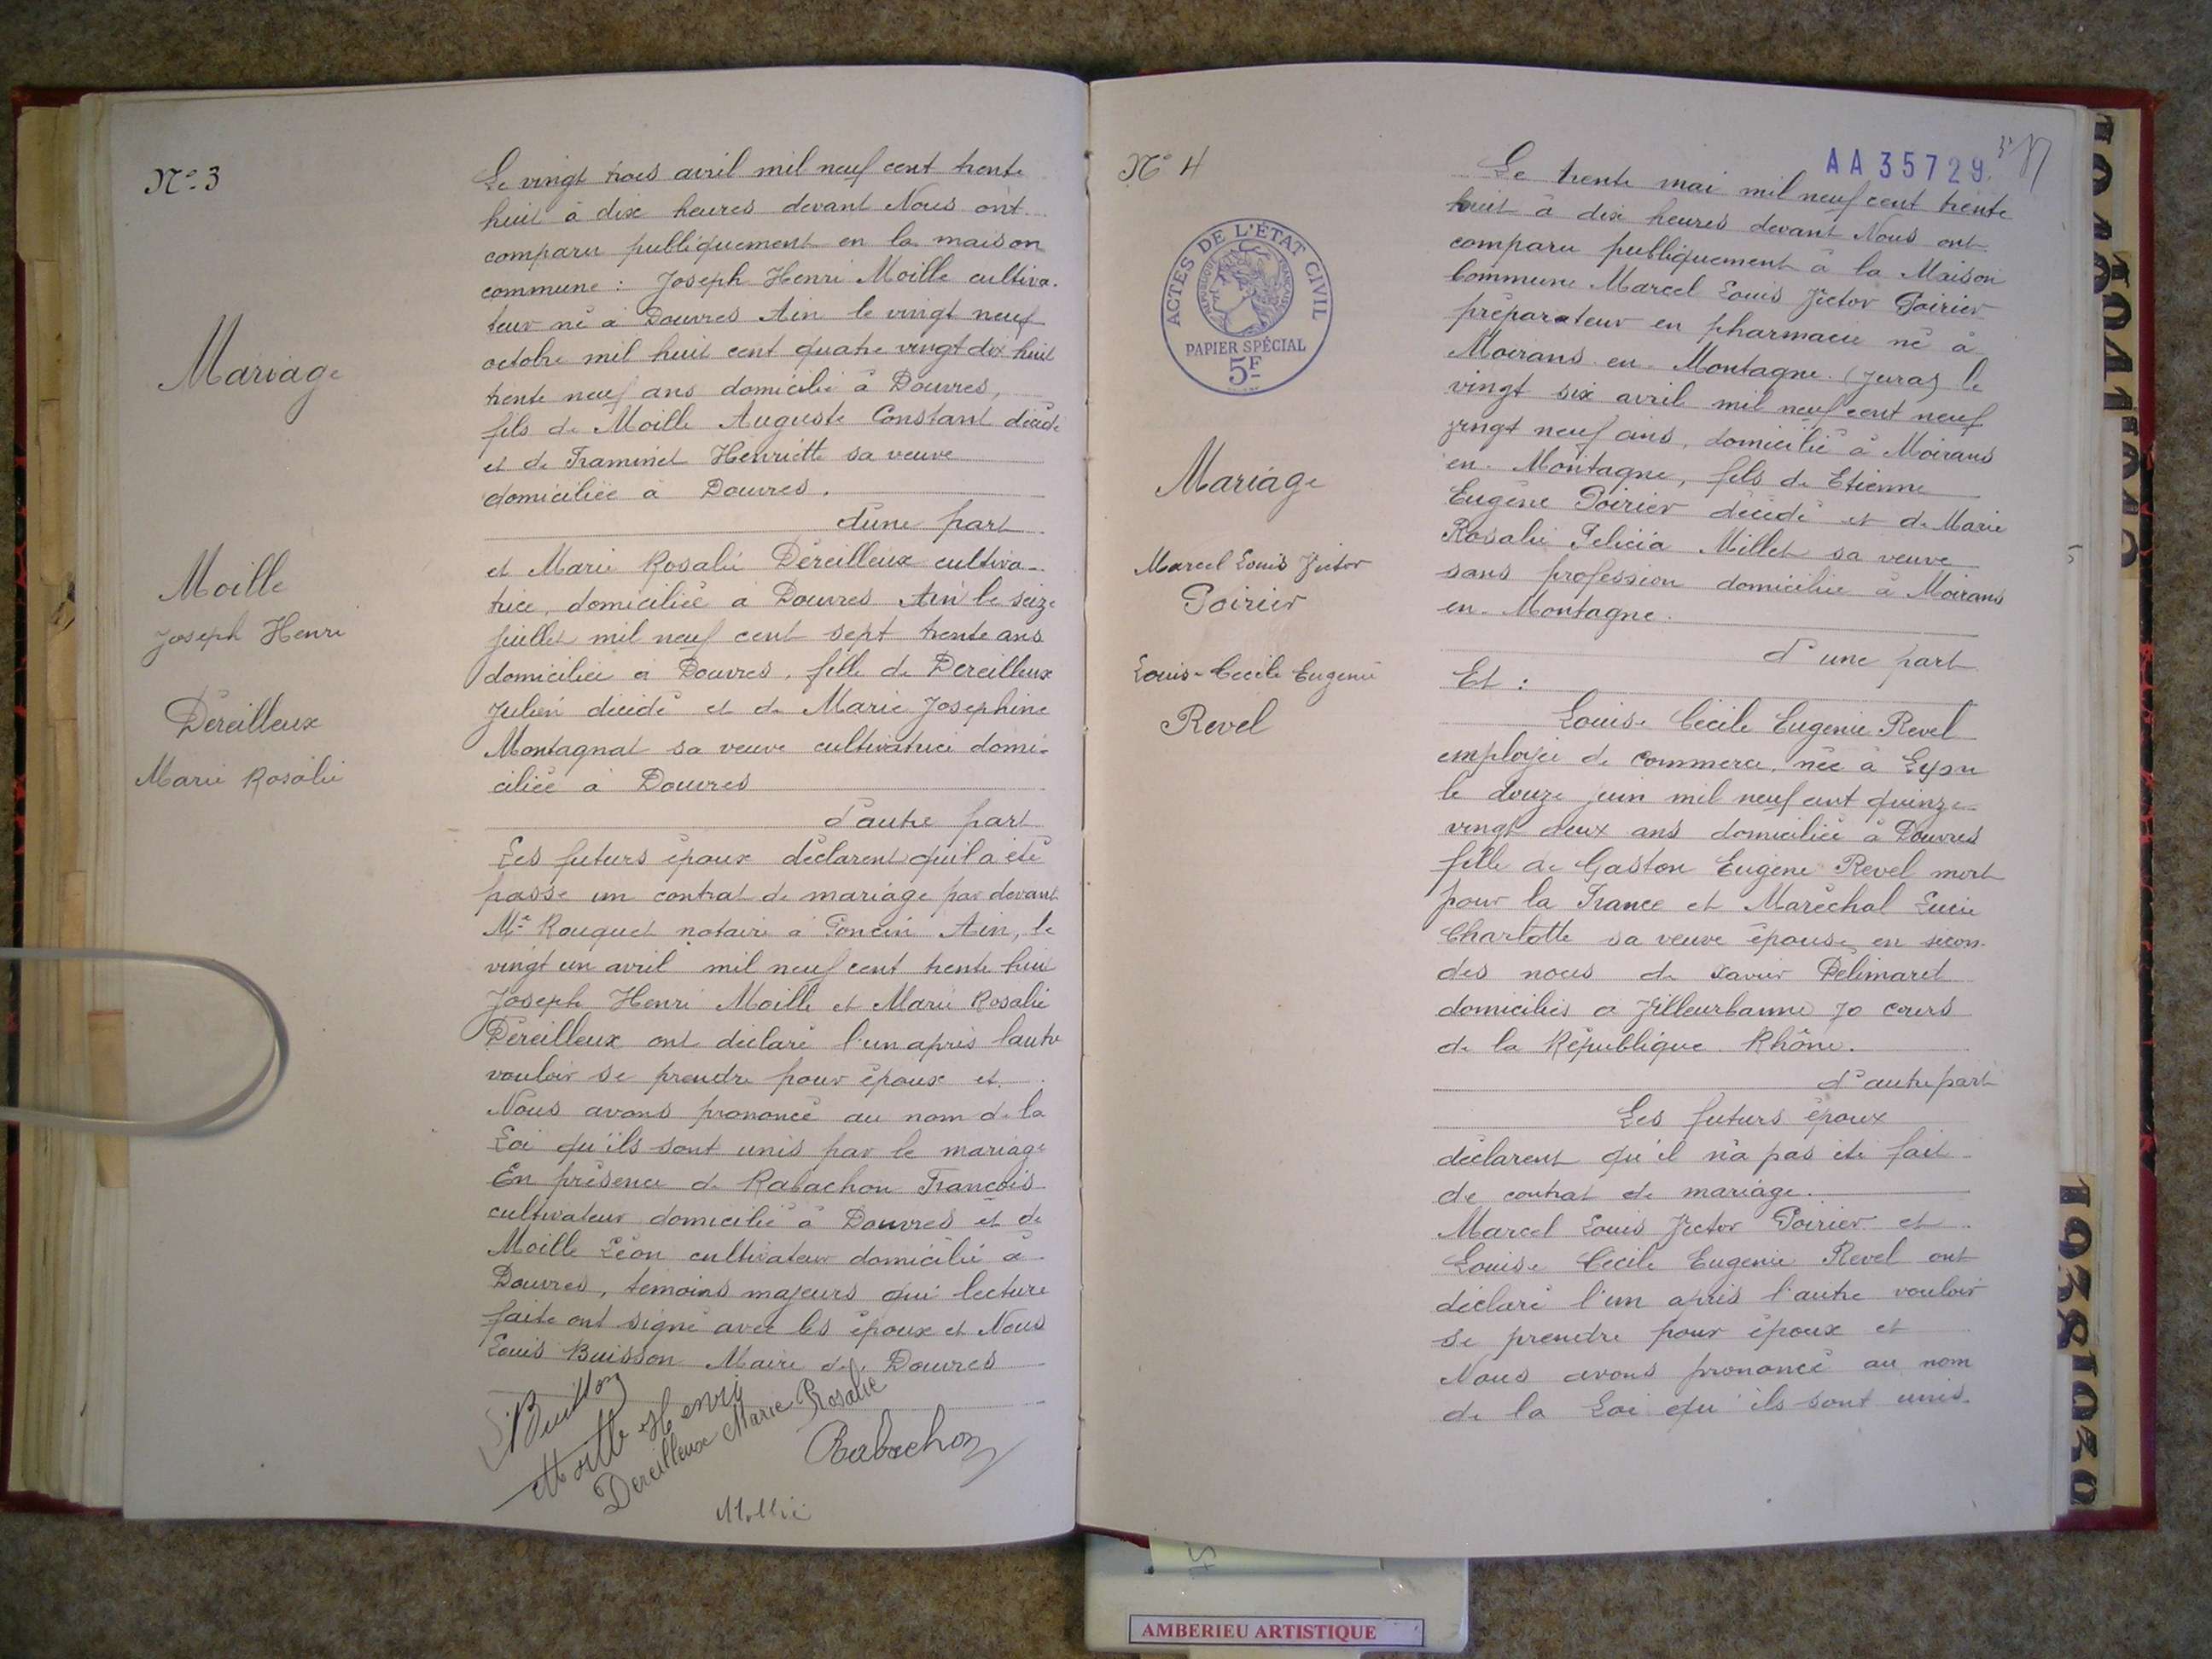 N° 3
Mariage
Moille
Joseph Henri
Déreilleux
Marie Rosalie
Le vingt trois avril mil neuf cent trente
huit à dix heures devant Nous ont
comparu publiquement en la maison
commune : Joseph Henri Moille cultiva-
teur né à Douvres Ain le vingt neuf
octobre mil huit cent quatre vingt dix huit
trente neuf ans domicilié à Douvres,
fils de Moille Auguste Constant décédé
et de Traminet Henriette sa veuve
domiciliée à Douvres.
d'une part
et Marie Rosalie Déreilleux cultiva-
trice, domiciliée à Douvres Ain le seize
juillet mil neuf cent sept trente ans
domiciliée à Douvres, fille de Dereilleux
Julien décédé et de Marie Josephine
Montagnat sa veuve cultivatrice domi-
ciliée à Douvres
d'autre part
Les futurs époux déclarent qu'il a été
passé un contrat de mariage par devant
Me Rouquet notaire à Poncin Ain, le
vingt un avril mil neuf cent trente huit
Joseph Henri Moille et Marie Rosalie
Déreilleux ont déclaré l'un après l'autre
vouloir se prendre pour époux et
Nous avons prononcé au nom de la
Loi qu'ils sont unis par le mariage
En présence de Rabachon François
cultivateur domicilié à Douvres et de
Moille Léon cultivateur domicilié à
Douvres, temoins majeurs qui lecture
faite ont signé avec les époux et Nous
Louis Buisson Maire de Douvres
Buisson
Moille Henri
Dereilleux Marie Rosalie
Rabachon
AA 35729
N° 4
ACTES DE L'ÉTAT CIVIL
RÉPUBLIQUE FRANÇAISE
PAPIER SPÉCIAL
5F
Mariage
Marcel Louis Victor
Poirier
Louise Cécile Eugenie
Revel
Le trente mai mil neuf cent trente
huit à dix heures devant Nous ont
comparu publiquement à la Maison
Commune Marcel Louis Victor Poirier
préparateur en pharmacie né à
Moirans en Montagne (Jura) le
vingt six avril mil neuf cent neuf
vingt neuf ans, domicilié à Moirans
en Montagne, fils de Etienne
Eugène Poirier décédé et de Marie
Rosalie Felicia Millet sa veuve
sans profession domiciliée à Moirans
en Montagne.
d'une part
Et :
Louise Cécile Eugenie Revel
employée de commerce, née à Lyon
le douze juin mil neuf cent quinze
vingt deux ans domiciliée à Douvres
fille de Gaston Eugène Revel mort
pour la France et Maréchal Lucie
Charlotte sa veuve épouse en secon-
des noces de Xavier Delimaret
domiciliés à Villeurbanne 70 cours
de la République Rhône.
d'autre part
Les futurs époux
déclarent qu'il n'a pas été fait
de contrat de mariage.
Marcel Louis Victor Poirier et
Louise Cécile Eugenie Revel ont
déclaré l'un après l'autre vouloir
se prendre pour époux et
Nous avons prononcé au nom
de la Loi qu'ils sont unis
AMBERIEU ARTISTIQUE